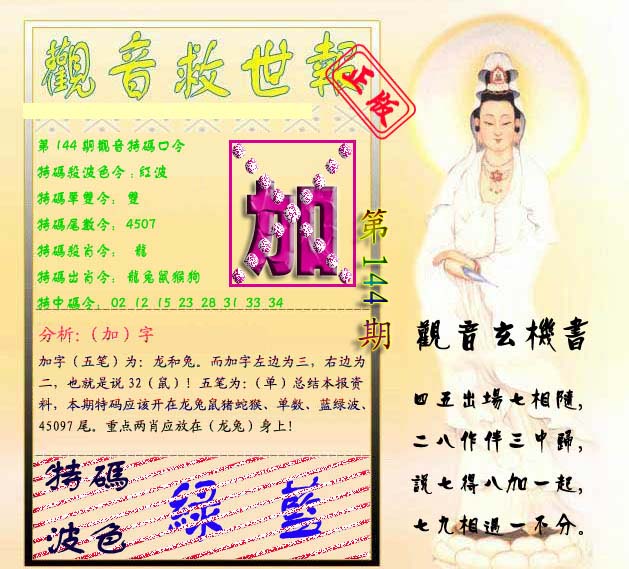 觀音救世報
正版
第144期觀音特碼口令
特碼殺波色令:紅波
特碼單雙令: 雙
特碼尾數令: 4507
特碼殺肖令: 龍
特碼出肖令: 龍兔鼠猴狗
特中碼令: 02 12 15 23 28 31 33 34
加
第144期
分析:(加)字
加字(五笔)为:龙和兔。而加字左边为三,右边为
二,也就是说32(鼠)!五笔为:(单)总结本报资
料,本期特码应该开在龙兔鼠猪蛇猴、单数、蓝绿波、
45097尾。重点两肖应放在(龙兔)身上!
特碼
波色
綠 藍
觀音玄機書
四五出場七相隨,
二八作伴三中歸,
說七得八加一起,
七九相遇一不分。